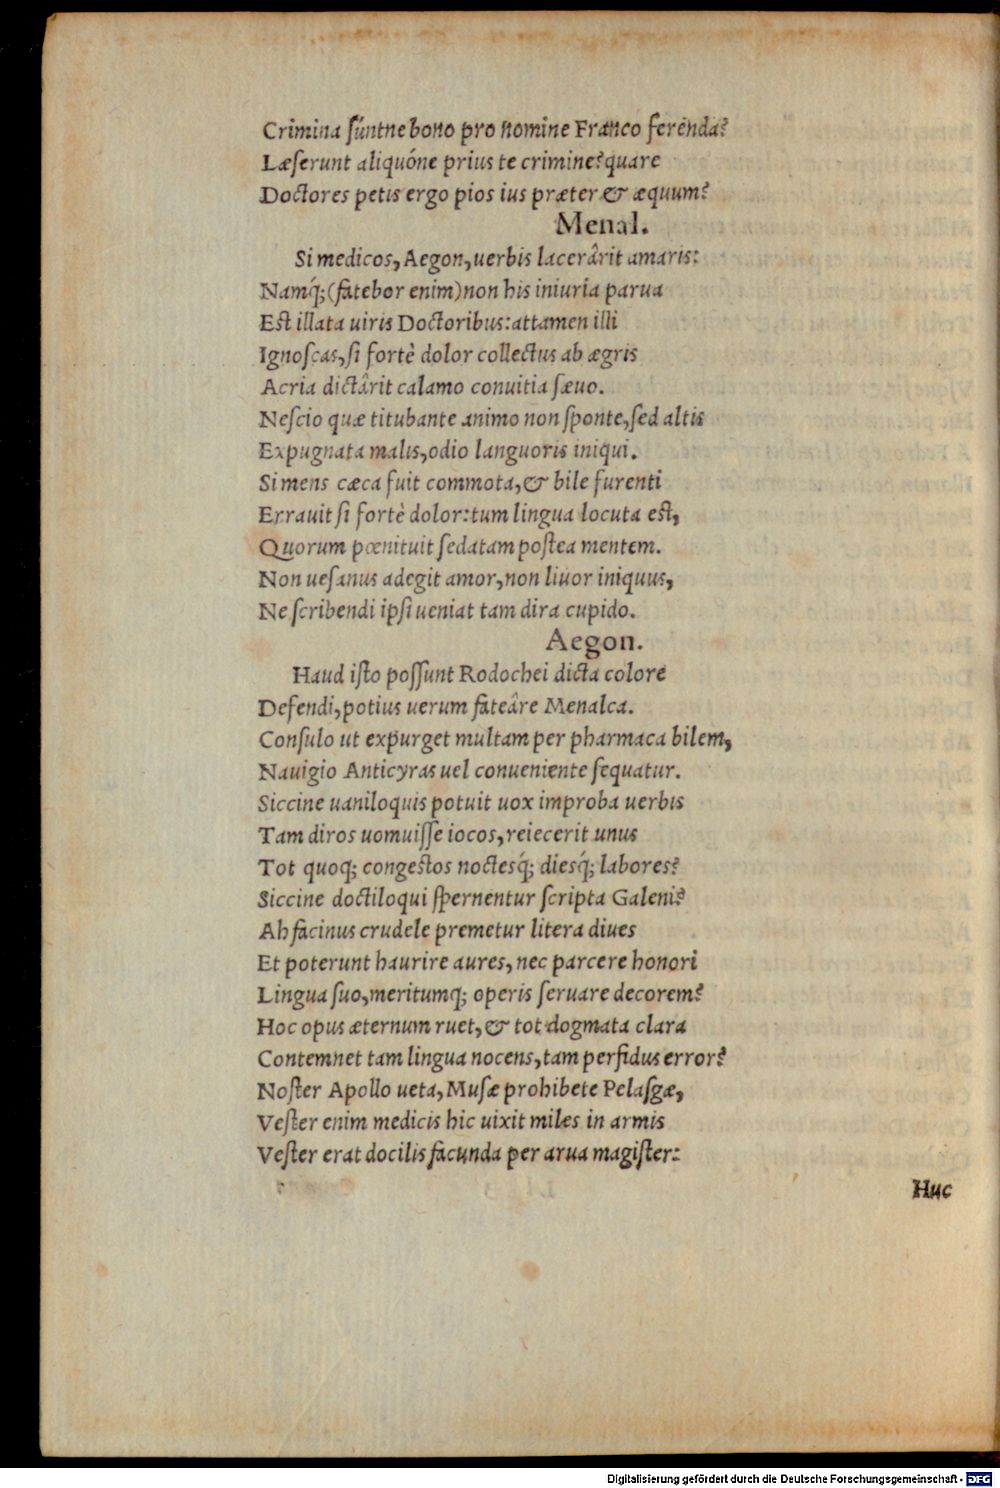 Crimina ſúntne bono pro nomine Franco ferenda?
Læſerunt aliquóne prius te crimine? quare
Doctores petis ergo pios ius præter & æquum?
Menal.
Si medicos, Aegon, uerbis lacerârit amaris:
Namq́; (fatebor enim) non his iniuria parua
Est illata uiris Doctoribus: attamen illi
Ignoſcas, ſi fortè dolor collectus ab ægris
Acria dictârit calamo conuitia ſæuo.
Neſcio quæ titubante animo non ſponte, ſed altis
Expugnata malis, odio languoris iniqui.
Si mens cæca fuit commota, & bile furenti
Errauit ſi fortè dolor: tum lingua locuta est,
Quorum pœnituit ſedatam poſtea mentem.
Non ueſanus adegit amor, non liuor iniquus,
Ne ſcribendi ipſi ueniat tam dira cupido.
Aegon.
Haud iſto poſſunt Rodochei dicta colore
Defendi, potius uerum fateâre Menalca.
Conſulo ut expurget multam per pharmaca bilem,
Nauigio Anticyras uel conueniente ſequatur.
Siccine uaniloquis potuit uox improba uerbis
Tam diros uomuiſſe iocos, reiecerit unus
Tot quoq; congeſtos noctesq́; diesq́; labores?
Siccine doctiloqui ſpernentur ſcripta Galeni?
Ah facinus crudele premetur litera diues
Et poterunt haurire aures, nec parcere honori
Lingua ſuo, meritumq; operis ſeruare decorem?
Hoc opus æternum ruet, & tot dogmata clara
Contemnet tam lingua nocens, tam perfidus error?
Noſter Apollo ueta, Muſæ prohibete Pelaſgæ,
Veſter enim medicis hic uixit miles in armis
Veſter erat docilis facunda per arua magiſter:
Huc
Digitalisierung gefördert durch die Deutsche Forschungsgemeinschaft - DFG